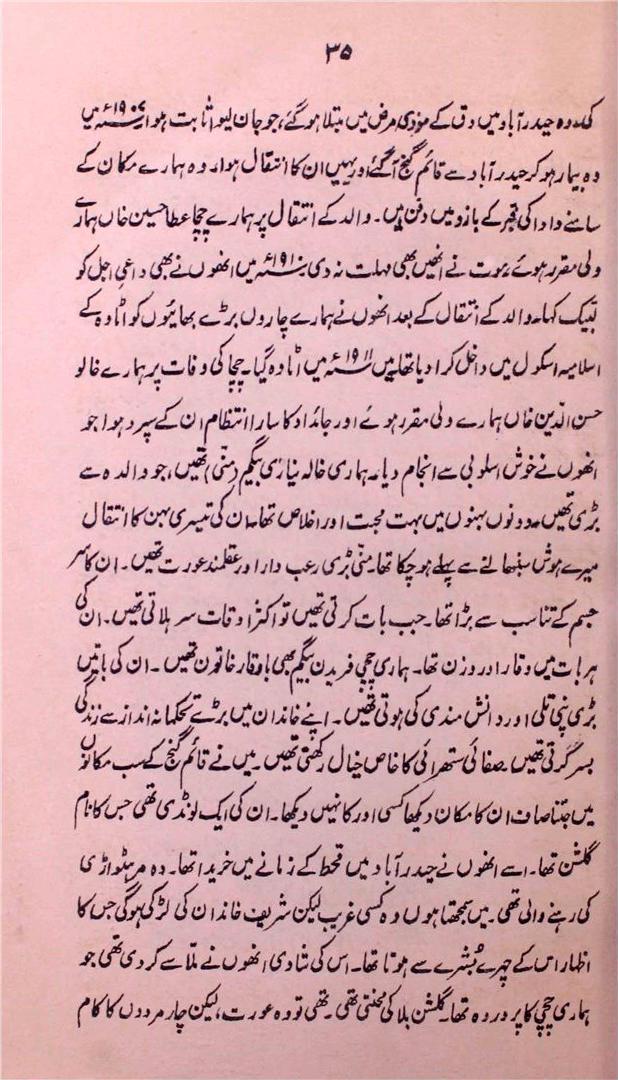 ۳۵
کی۔ وہ حیدرآباد میں دق کے موذی مرض میں مبتلا ہوگئے، جو جان لیوا ثابت ہوا۔ ۱۹۰۷ء میں
وہ بیمار ہوکر حیدرآباد سے قائم گنج آگئے اور یہیں ان کا انتقال ہوا۔ وہ ہمارے مکان کے
سامنے دادا کی قبر کے بازو میں دفن ہیں۔ والد کے انتقال پر ہمارے چچا عطا حسین خاں ہمارے
ولی مقرر ہوئے۔ موت نے انھیں بھی مہلت نہ دی۔ ۱۹۱۰ء میں انھوں نے بھی داعی اجل کو
لبیک کہا۔ والد کے انتقال کے بعد انھوں نے ہمارے چاروں بڑے بھائیوں کو اٹاوہ کے
اسلامیہ اسکول میں داخل کرا دیا تھا۔ میں ۱۹۱۱ء میں اٹاوہ گیا۔ چچا کی وفات پر ہمارے خالو
حسن الدین خاں ہمارے ولی مقرر ہوئے اور جائداد کا سارا انتظام ان کے سپرد ہوا جو
انھوں نے خوش اسلوبی سے انجام دیا۔ ہماری خالہ نیازی بیگم (منّی) تھیں، جو والدہ سے
بڑی تھیں۔ دونوں بہنوں میں بہت محبت اور اخلاص تھا۔ ان کی تیسری بہن کا انتقال
میرے ہوش سنبھالنے سے پہلے ہو چکا تھا۔ منّی بڑی رعب دار اور عقلمند عورت تھیں۔ ان کا سر
جسم کے تناسب سے بڑا تھا۔ جب بات کرتی تھیں تو اکثر اوقات سر ہلاتی تھیں۔ ان کی
ہر بات میں وقار اور وزن تھا۔ ہماری چچی فریدن بیگم بھی باوقار خاتون تھیں۔ ان کی باتیں
بڑی نپی تلی اور دانش مندی کی ہوتی تھیں۔ اپنے خاندان میں بڑے تحکمانہ انداز سے زندگی
بسر کرتی تھیں۔ صفائی ستھرائی کا خاص خیال رکھتی تھیں۔ میں نے قائم گنج کے سب مکانوں
میں جتنا صاف ان کا مکان دیکھا کسی اور کا نہیں دیکھا۔ ان کی ایک لونڈی تھی جس کا نام
گلشن تھا۔ اسے انھوں نے حیدرآباد میں قحط کے زمانے میں خریدا تھا۔ وہ مرہٹواڑی
کی رہنے والی تھی۔ میں سمجھتا ہوں وہ کسی غریب لیکن شریف خاندان کی لڑکی ہوگی جس کا
اظہار اس کے چہرے بُشرے سے ہوتا تھا۔ اس کی شادی انھوں نے ملّا سے کردی تھی جو
ہماری چچی کا پروردہ تھا۔ گلشن بلا کی محنتی تھی۔ تھی تو وہ عورت، لیکن چار مردوں کا کام